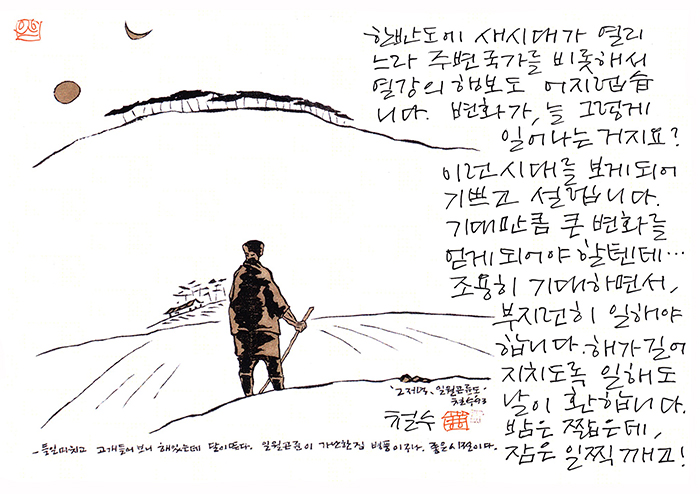 한반도에 새시대가 열리
느라 주변국가를 비롯해서
열강의 행보도 어지럽습
니다. 변화가, 늘 그렇게
일어나는 거지요?
이런 시대를 보게되어
기쁘고 설렙니다.
기대만큼 큰 변화를
얻게되어야 할텐데…
조용히 기대하면서,
부지런히 일해야
합니다. 해가 길어
지치도록 일해도
날이 환합니다.
밤은 짧은데,
잠은 일찍 깨고!
'그 저녁, 일월곤륜도'
철수93
철수
들일 마치고 고개들어보니 해있는데 달이 뜬다. 일월곤륜이 가난한집 병풍이구나. 좋은시절이다.